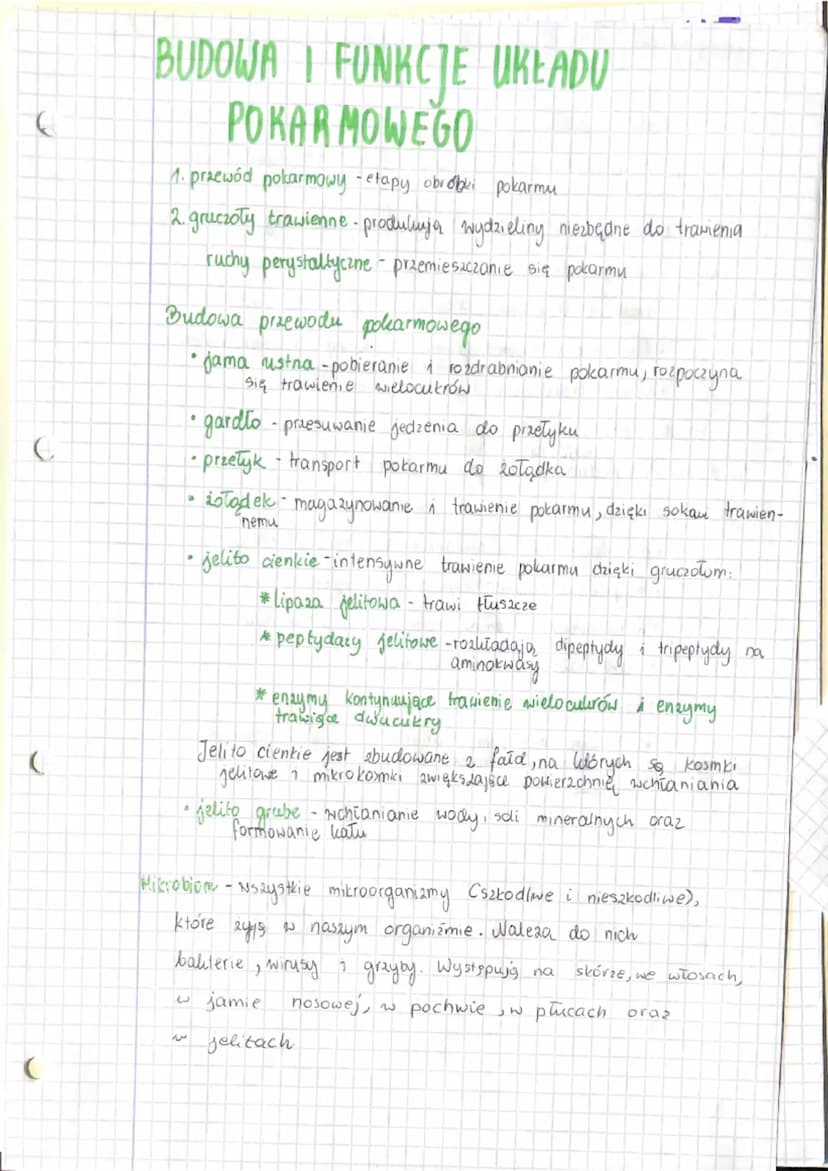 BUDOWA I FUNKCJE UKŁADU
POKARMOWEGO
1. przewód pokarmowy - etapy obróbki pokarmu
2. gruczoły trawienne - produkują wydzieliny niezbędne do trawienia
ruchy perystaltyczne - przemieszczanie się pokarmu
Budowa przewodu pokarmowego
• jama ustna - pobieranie i rozdrabnianie pokarmu, rozpoczyna
się trawienie wielocukrów
• gardło - przesuwanie jedzenia do przełyku
• przełyk - transport pokarmu do żołądka
• żołądek - magazynowanie i trawienie pokarmu, dzięki sokowi trawien-
nemu
• jelito cienkie - intensywne trawienie pokarmu dzięki gruczołom:
* lipaza jelitowa - trawi tłuszcze
* peptydazy jelitowe - rozkładają dipeptydy i tripeptydy na
aminokwasy
* enzymy kontynuujące trawienie wielocukrów i enzymy
trawiące dwucukry
Jelito cienkie jest zbudowane z fałd, na których są kosmki
jelitowe i mikrokosmki zwiększające powierzchnię wchłaniania
• jelito grube - wchłanianie wody, soli mineralnych oraz
formowanie kału
Mikrobiom - wszystkie mikroorganizmy (szkodliwe i nieszkodliwe),
które żyją w naszym organiźmie. Należą do nich
bakterie, wirusy i grzyby. Występują na skórze, we włosach,
w jamie nosowej, w pochwie, w płucach oraz
w jelitach